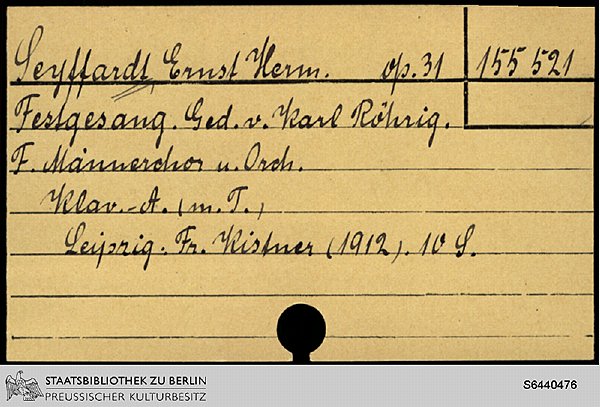 Seyffardt, Ernst Herm. op. 31 155 521
Festgesang. Ged. v. Karl Röhrig.
F. Männerchor u. Orch.
Klav.-A. (m. T.)
Leipzig: Fr. Kistner (1912). 10 S.
STAATSBIBLIOTHEK ZU BERLIN
PREUSSISCHER KULTURBESITZ
S6440476